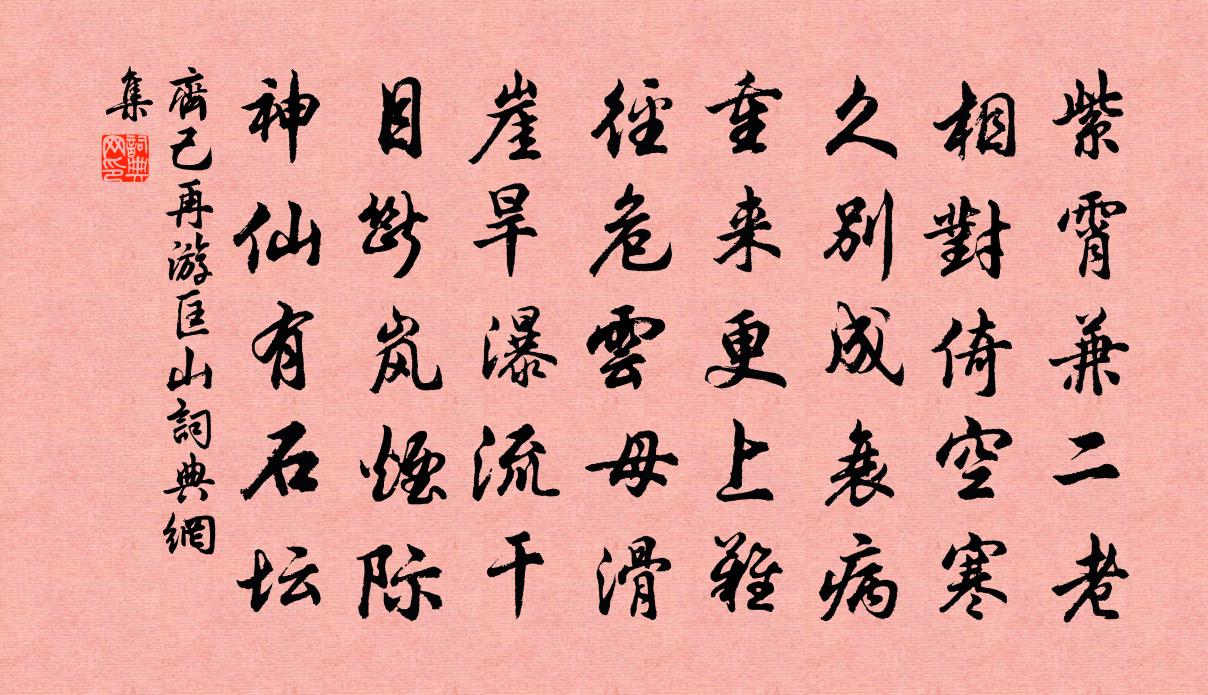 紫霄兼二老
相對倚空寒
久别成衰病
重来更上難
徑危雲母滑
崖旱瀑流干
目斷岚煙际
神仙有石坛
齊己再游匡山詞典網
集
詞典网印